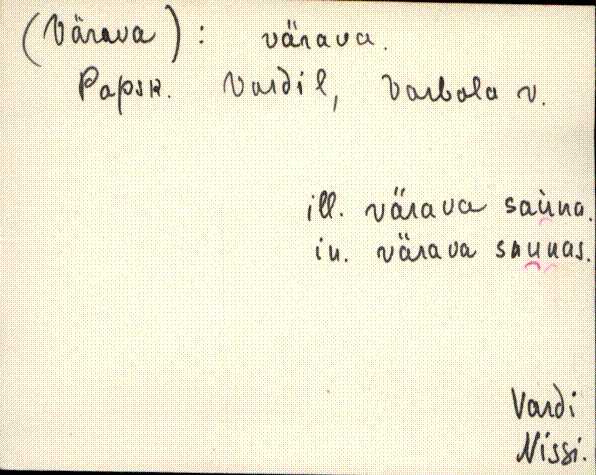 (Värava): värava.
Papsk. Vardil, Varbola v.
ill. värava saùna.
in. värava saunas.
Vardi
Nissi.